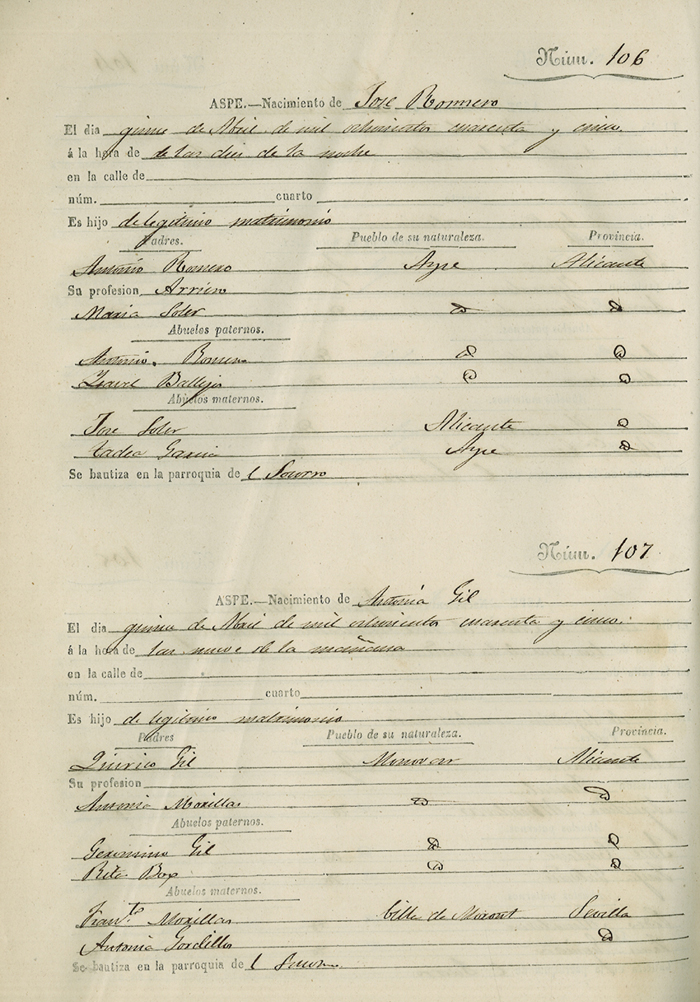 Núm. 106
ASPE.—Nacimiento de Jose Rommero
El dia quince de Abril de mil ochocientos cuarenta y cinco.
á la hora de de las dies de la noche
en la calle de
núm. cuarto
Es hijo de legitimo matrimonio
Padres. Pueblo de su naturaleza. Provincia.
Antonio Romero Aspe Alicante
Su profesion Arriero
Maria Soler
Abuelos paternos.
Antonio Romero
Isavel Ballejo
Abuelos maternos.
Jose Soler Alicante
Tadea Garcia Aspe
Se bautiza en la parroquia de l Socorro
Núm. 107
ASPE.—Nacimiento de Antonia Gil
El dia quince de Abril de mil ochocientos cuarenta y cinco.
á la hora de las nueve de la mañana
en la calle de
núm. cuarto
Es hijo de legitimo matrimonio
Padres Pueblo de su naturaleza. Provincia.
Quirico Gil Monovar Alicante
Su profesion
Antonia Morillas
Abuelos paternos.
Geronimo Gil
Rita Box
Abuelos maternos.
Fran.to Morillas Villa de Moront Sevilla
Antonia Gordillo
Se bautiza en la parroquia de l Socorro